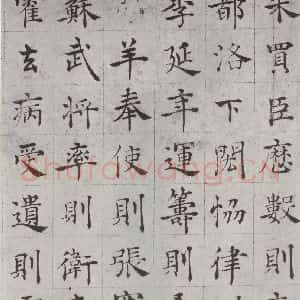 朱買臣歷數則
都洛下閎恊律
李延年運籌則
羊奉使則張騫
蘇武將率則衛
霍去病受遺則